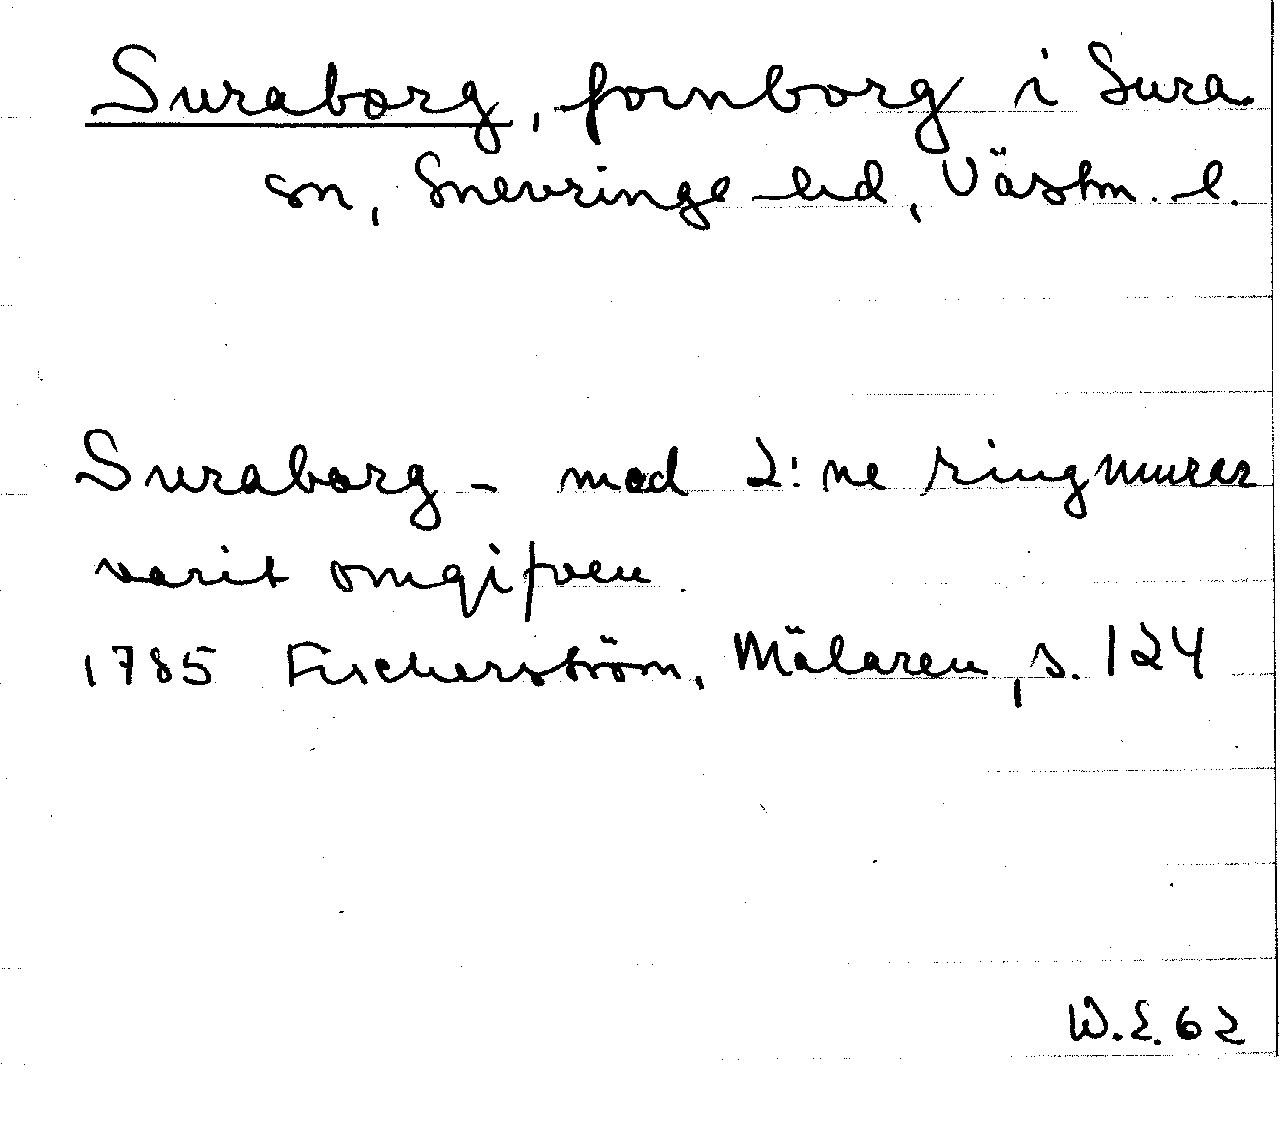 Suraborg, fornborg i Sura
sn, Snevringe hd, Västm. l.
Suraborg - med 2:ne ringmurar
varit omgifven.
1785 Fischerström, Mälaren, s. 124
W.E. 62